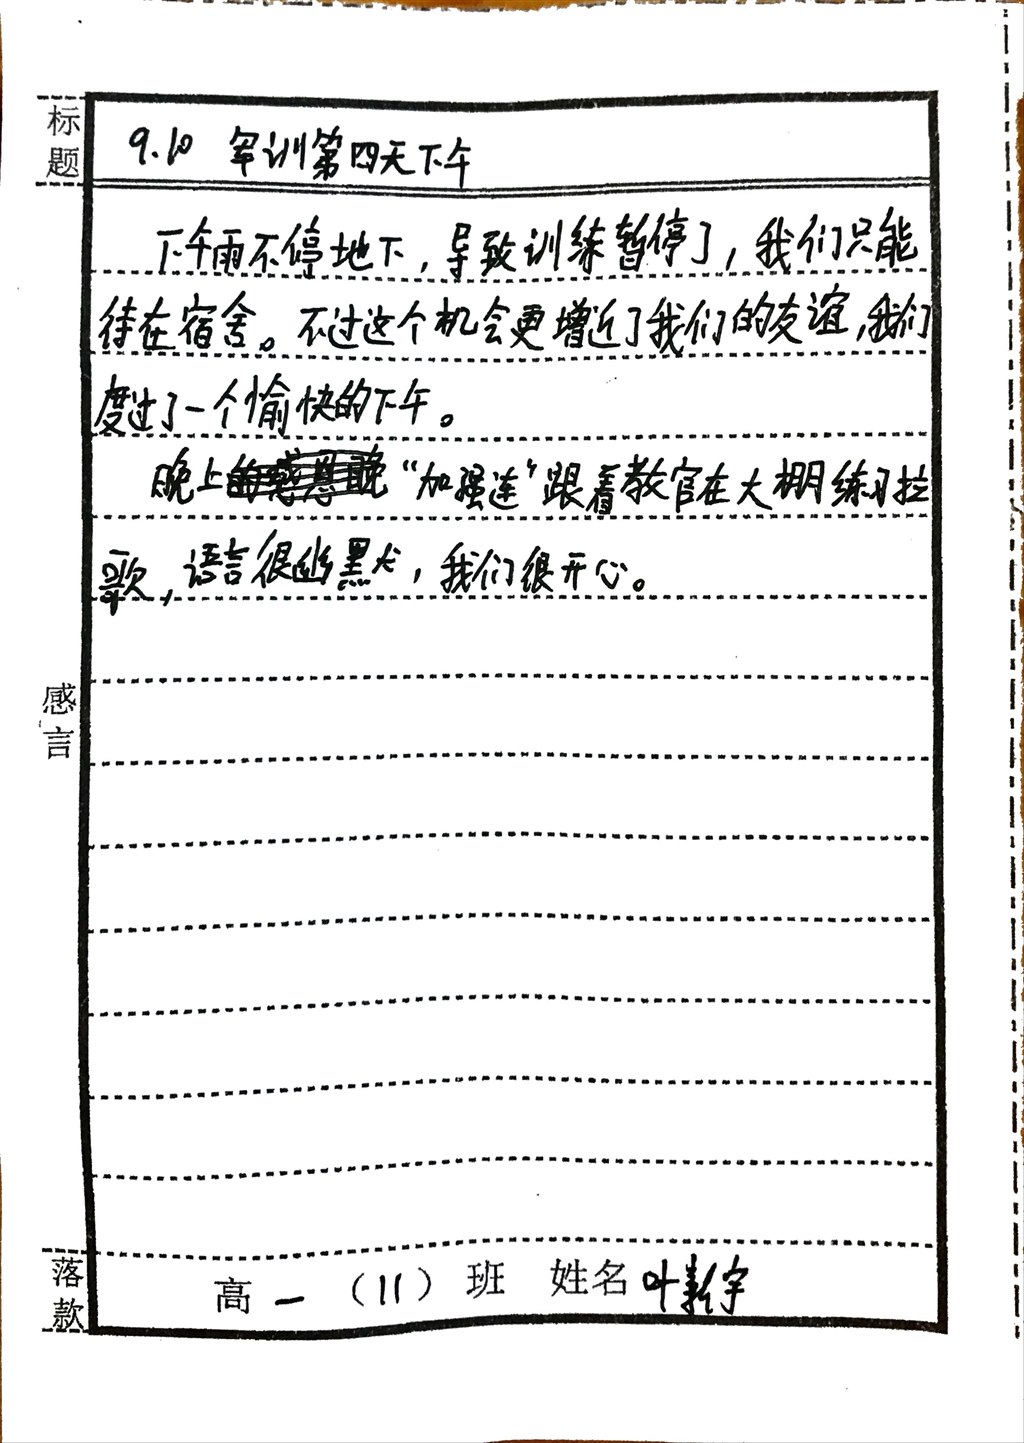 标题
9.10 军训第四天下午
下午雨不停地下，导致训练暂停了，我们只能
待在宿舍。不过这个机会更增近了我们的友谊，我们
度过了一个愉快的下午。
晚上“加强连”跟着教官在大棚练习拉
歌，语言很幽黑犬，我们很开心。
感言
落款
高一（11）班 姓名 叶新宇